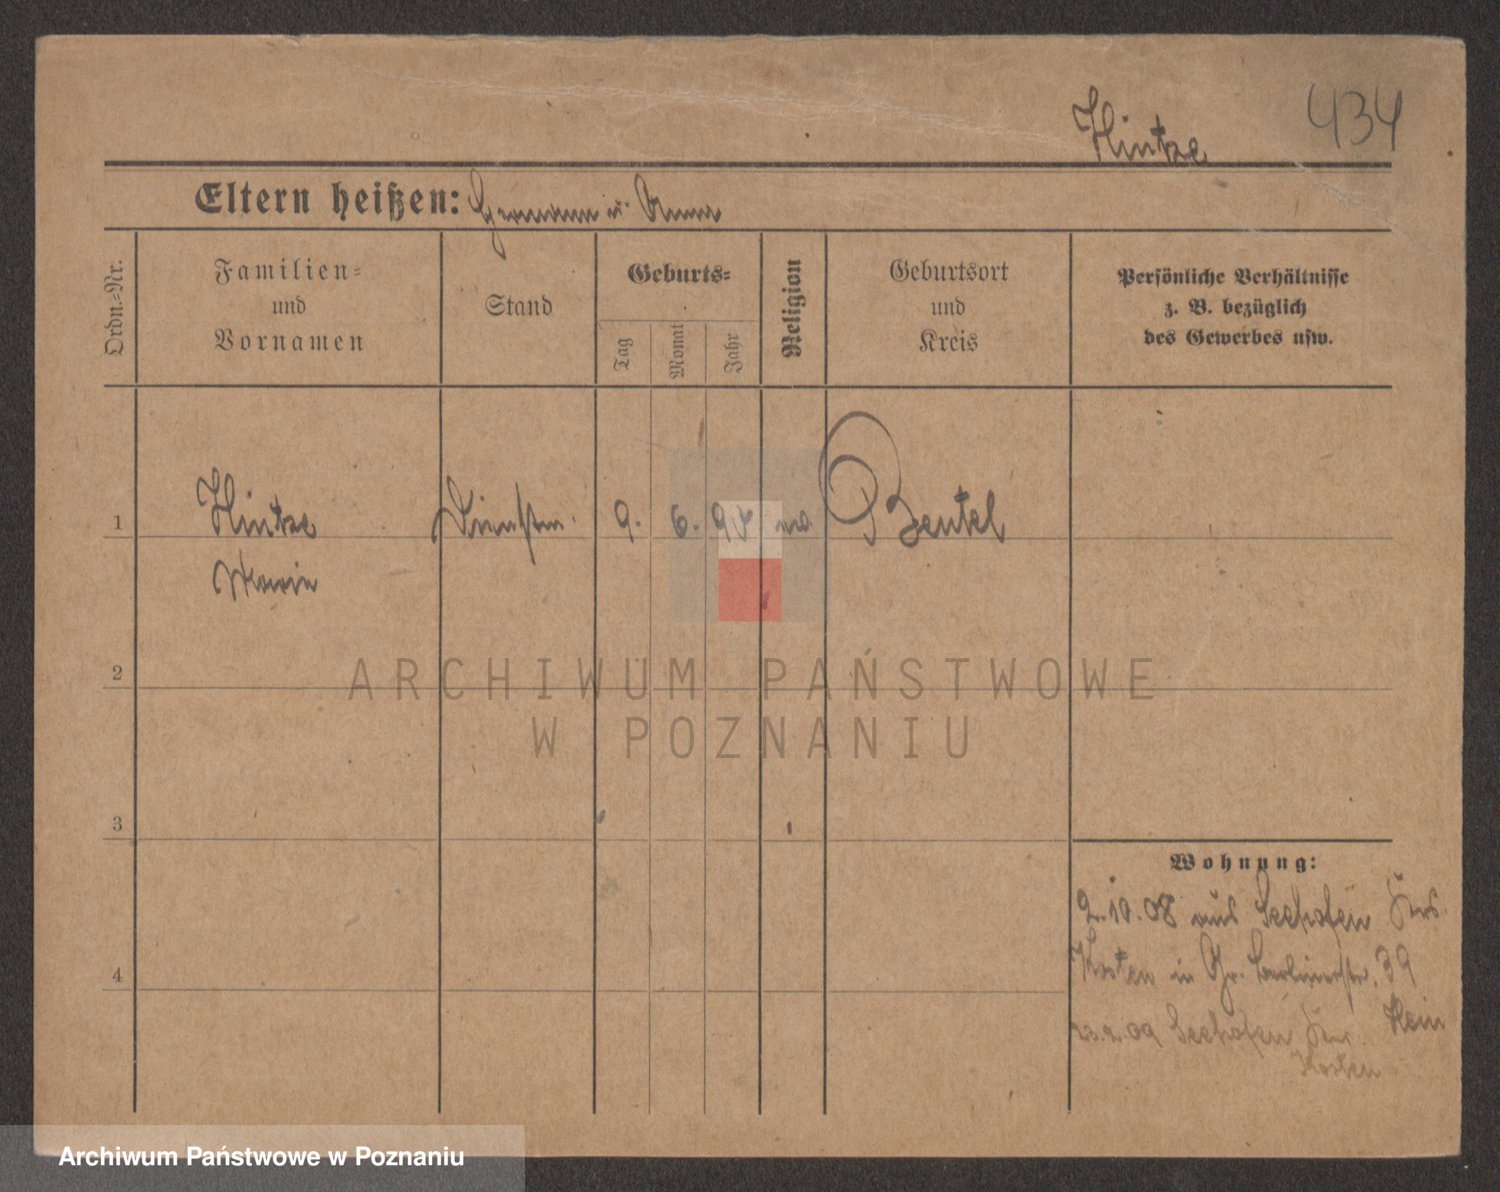 434
Hintze
Eltern heißen: Hermann u. Anna
Ordn.-Nr.
Familien-
und
Vornamen
Stand
Geburts-
Tag
Monat
Jahr
Religion
Geburtsort
und
Kreis
Persönliche Verhältnisse
z. B. bezüglich
des Gewerbes usw.
1 Hintze 9. 6. ev. Beutel
Marie
2
ARCHIWUM PAŃSTWOWE
W POZNANIU
3
Wohnung:
2.10.08 aus Seehofen Krs.
4
Kosten in Gr. Berlinerstr. 39
Hein
23.2.09 Seehofen Krs.
Kosten
Archiwum Państwowe w Poznaniu